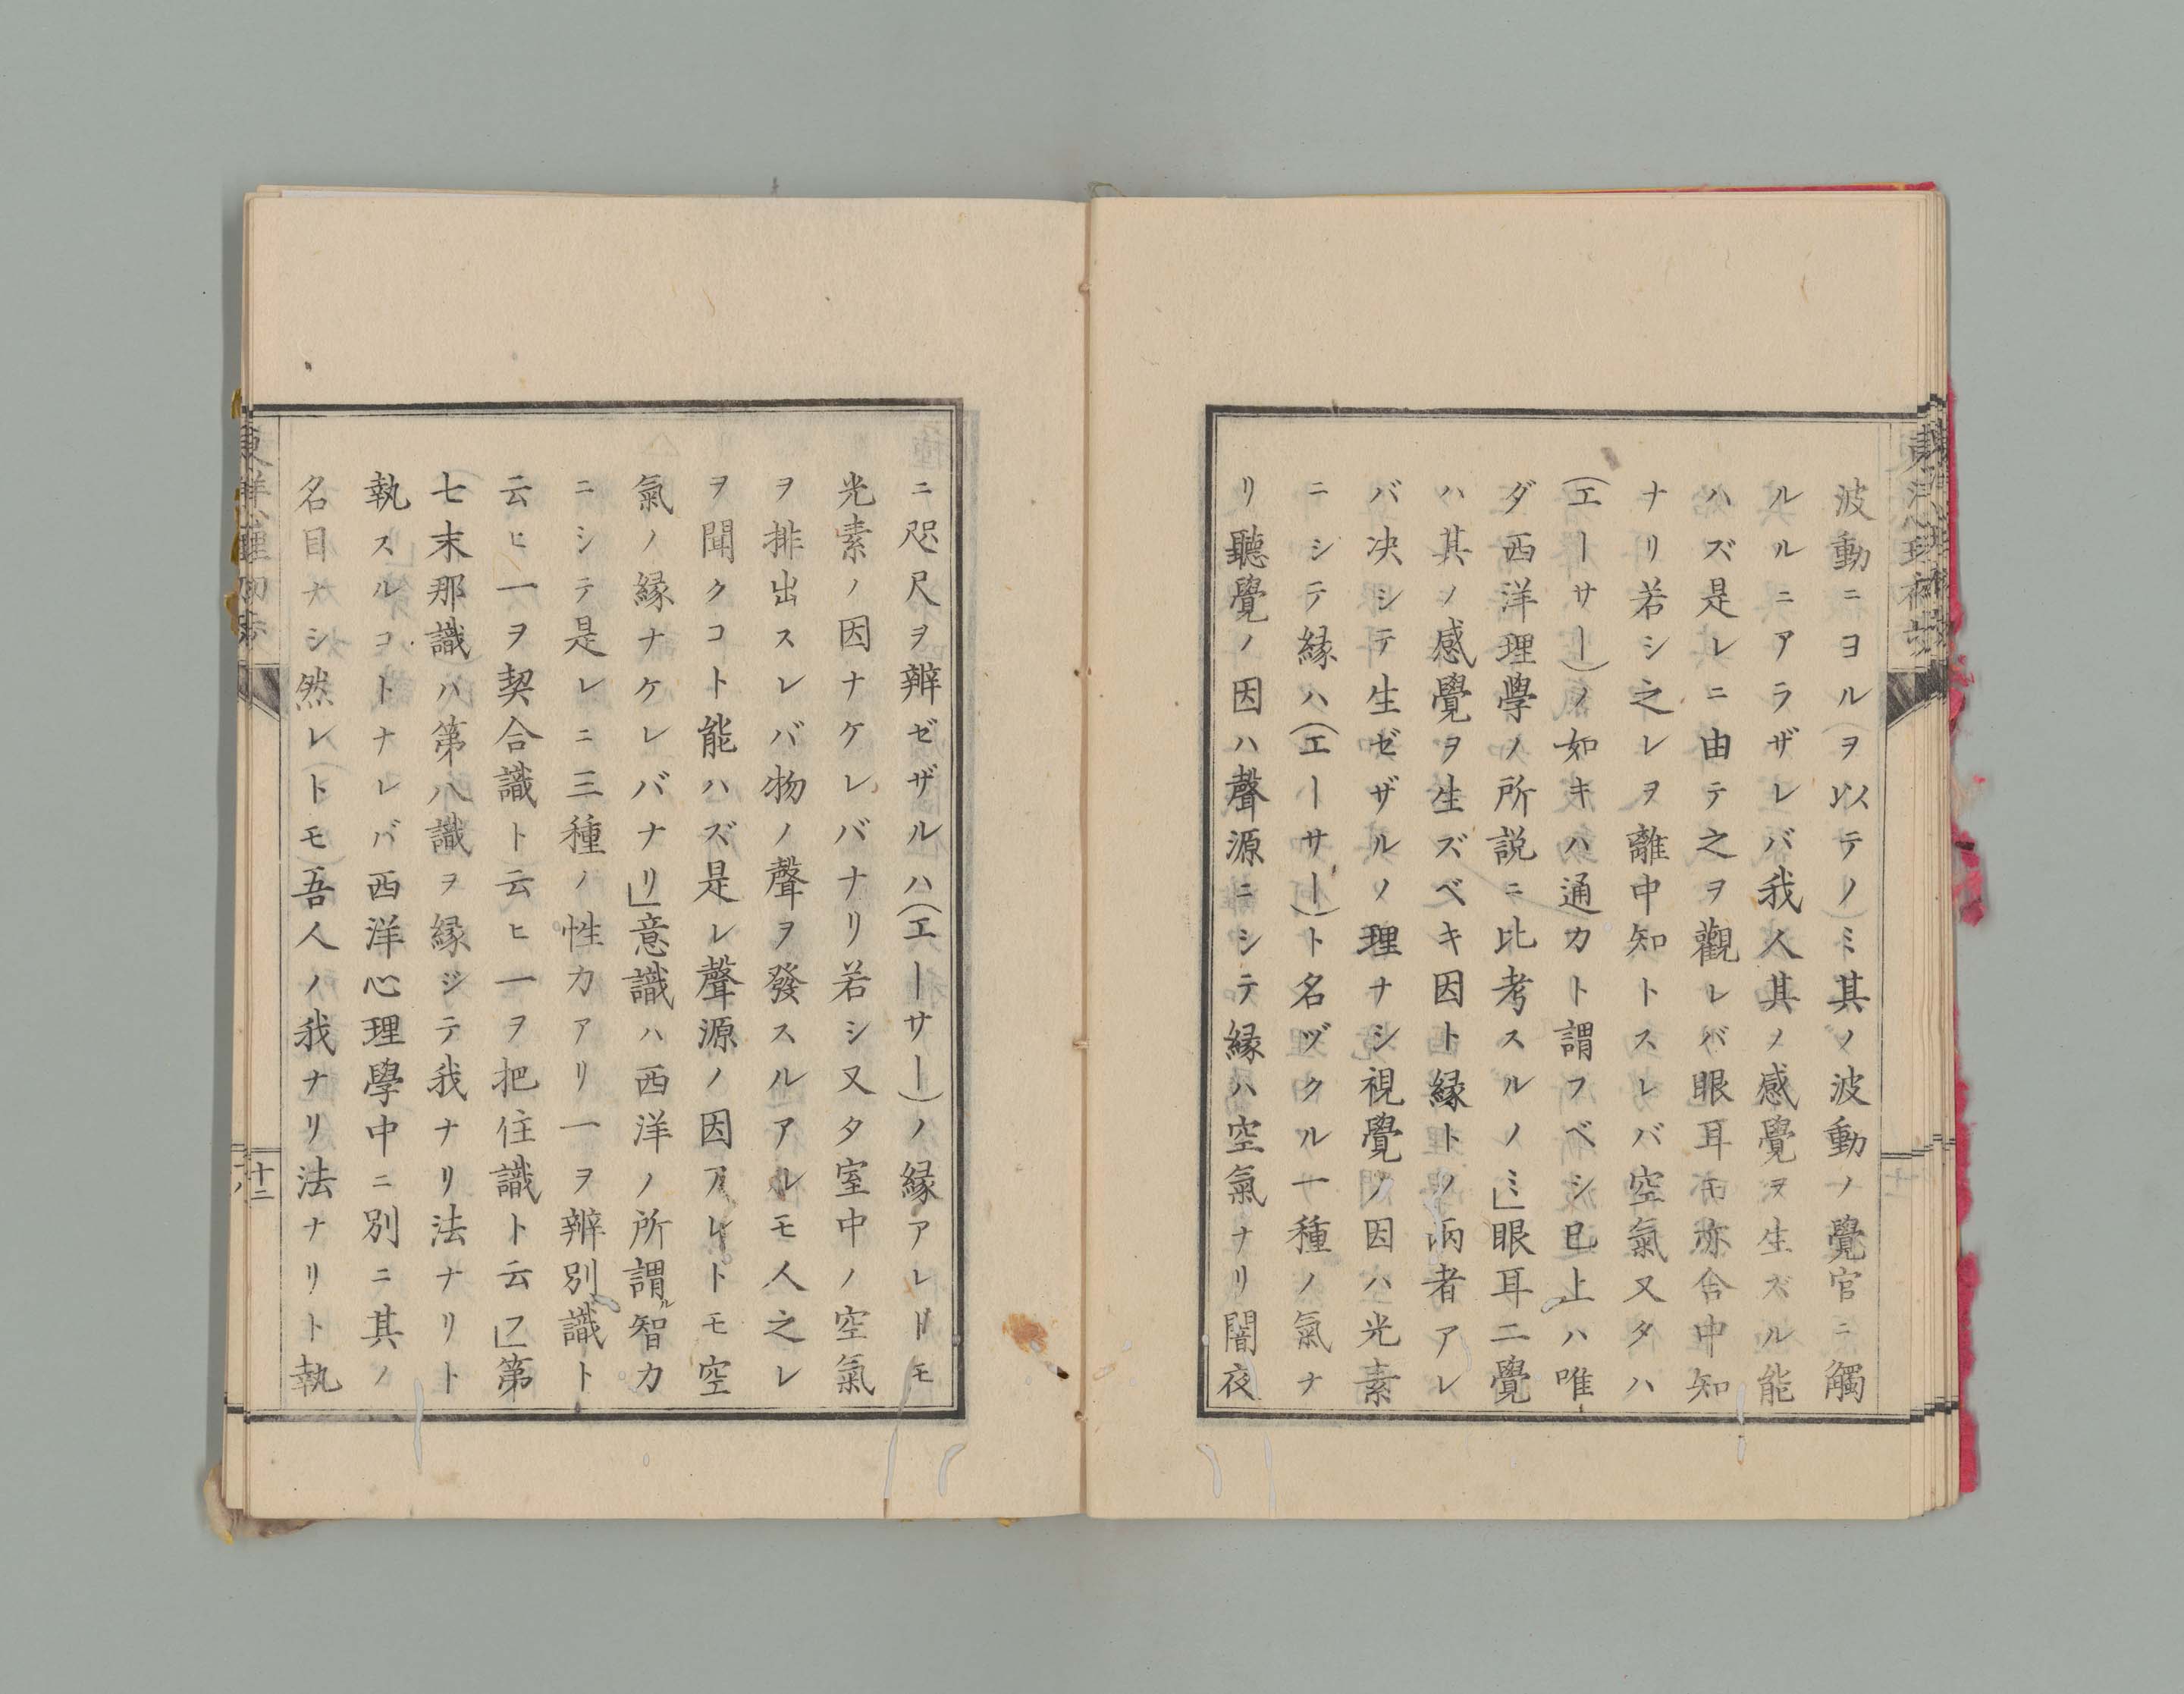 波動ニヨル(ヲ以テノ)ミ其ノ波動ノ覺官ニ觸
ルルニアラザレバ我人其ノ感覺ヲ生ズル能
ハズ是レニ由テ之ヲ觀レバ眼耳モ亦合中知
ナリ若シ之レヲ離中知トスレバ空氣又タハ
(エーサー)ノ如キハ通力ト謂フベシ已上ハ唯
ダ西洋理學ノ所説ニ比考スルノミ」眼耳二覺
ハ其ノ感覺ヲ生ズベキ因ト縁トノ兩者アレ
バ决シテ生ゼザルノ理ナシ視覺ノ因ハ光素
ニシテ縁ハ(エーサー)ト名ヅクル一種ノ氣ナ
リ聽覺ノ因ハ聲源ニシテ縁ハ空氣ナリ闇夜
ニ咫尺ヲ辨ゼザルハ(エーサー)ノ縁アレドモ
光素ノ因ナケレバナリ若シ又タ室中ノ空氣
ヲ排出スレバ物ノ聲ヲ發スルアルモ人之レ
ヲ聞クコト能ハズ是レ聲源ノ因アレドモ空
氣ノ縁ナケレバナリ」意識ハ西洋ノ所謂ル智力
ニシテ是レニ三種ノ性力アリ一ヲ辨別識ト
云ヒ一ヲ契合識ト云ヒ一ヲ把住識ト云フ」第
七末那識ハ第八識ヲ縁ジテ我ナリ法ナリト
執スルコトナレバ西洋心理學中ニ別ニ其ノ
名目ナシ然レ(ト)モ吾人ノ我ナリ法ナリト執
十二